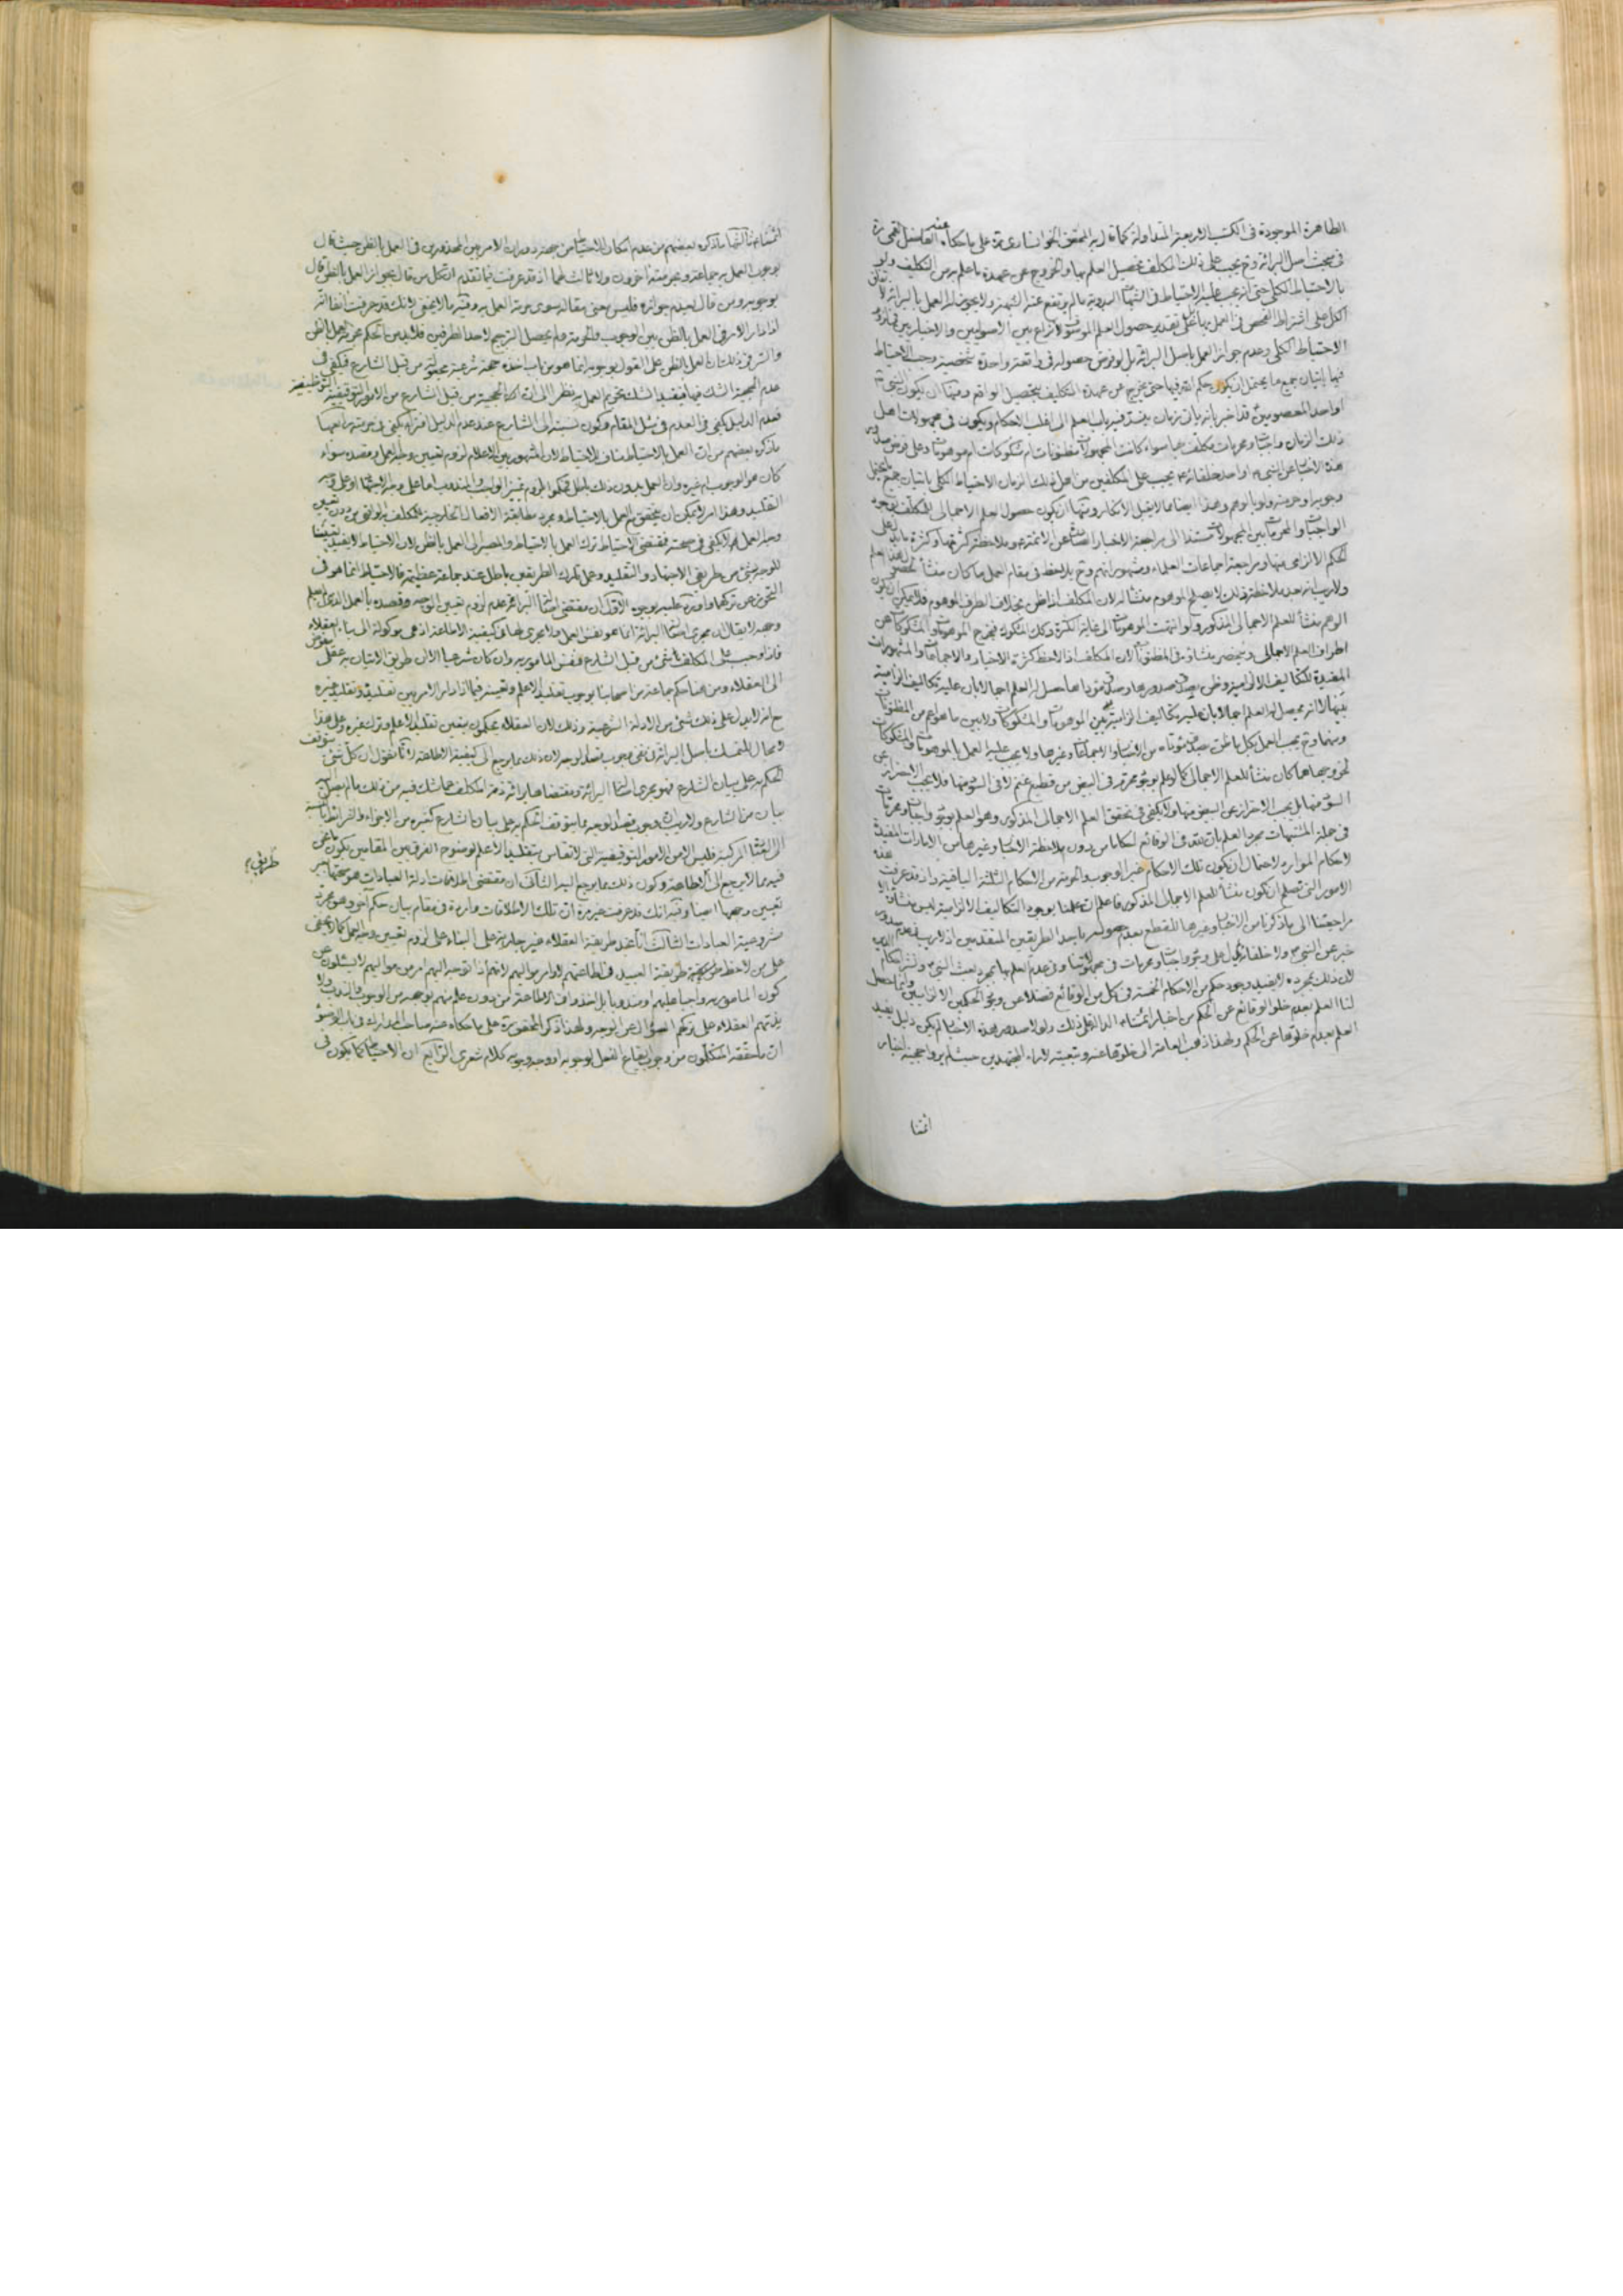 الظاهرة الموجودة فى الكتب الاربعة المتداولة كما قال به المحقق الخوانسارى ره على ما حكاه عنه الفاضل القمى ره
فى مبحث اصل البرائة وح يجب على ذلك المكلف تحصيل العلم بها والخروج عن عهدة ما علم من التكليف ولو
بالاحتياط الكلى حتى انه يجب عليه الاحتياط فى الشبهات البدوية ما لم يرتفع عنه الشبهة ولا يجوز له العمل بالبرائة
الكل على اشتراط الفحص فى العمل بها على تقدير حصول العلم
الاحتياط الكلى وعدم جواز العمل باصل البرائة بل لو فرض حصوله فى واقعة واحدة شخصية وجب الاحتياط
فيها باتيان جميع ما يحتمل ان يكون حكم الله فيها حتى يخرج عن عهدة التكليف بتحصيل الواقع ومنها ان يكون النبى ص
او احد المعصومين قد اخبر بانه ياتى زمان ينسد فيه باب العلم الى اغلب الاحكام ويكون فى مجهولات اهل
ذلك الزمان واجبات ومحرمات مكلف بها سواء كانت المجهولات مظنونات ام مشكوكات ام موهومات وعلى فرض صدور
هذه الاخبار عن النبى ص او احد خلفائه ع يجب على المكلفين من اهل ذلك الزمان الاحتياط الكلى باتيان جميع ما يحتمل
وجوبه او حرمته ولو بالوهم وهذا ايضا مما لا يقبل الانكار ومنها ان يكون حصول العلم الاجمالى للمكلف بوجود
الواجبات والمحرمات بين المجهولات مستندا الى مراجعة الاخبار الصادرة عن الائمة ع وملاحظة كثرتها وكثرة ما يدل على
الحكم الالزامى منها ومراجعة اجماعات العلماء ومشهوراتهم وح يلاحظ فى مقام العمل ما كان منشأ لحصول هذا العلم
ولا ريب انه بعد ملاحظة ذلك لا يصلح الموهوم منشأ له لان المكلف اذا ظن بخلاف الطرف الموهوم فلا يمكن ان يكون
الوهم منشأ للعلم الاجمالى المذكور ولو انتهت الموهومات الى غاية الكثرة وكذلك المشكوك فيخرج الموهومات والمشكوكات عن
اطراف العلم الاجمالى وينحصر منشاؤه فى المظنونات لان المكلف اذا لاحظ كثرة الاخبار والاجماعات والمشهورات
المفيدة للتكاليف الالزامية وظن بصدق صدورها وصدق مؤداها حصل له العلم اجمالا بان عليه تكاليف الزامية
بينها لا انه يحصل له العلم اجمالا بان عليه تكاليف الزامية بين الموهومات والمشكوكات ولا بين ما هو اعم من المظنونات
ومنهما وح يجب العمل بكل ما ظن بصدق مؤداه من الاخبار والاجماعات وغيرها ولا يجب عليه العمل بالموهومات والمشكوكات
لخروجهما عما كان منشأ للعلم الاجمالى كما لو علم بوجود محرم فى البيض من قطيع غنم لا فى السود منها فلا يجب الاحتراز عن
السود منها بل يجب الاحتراز عن البيض منها ولا يكفى فى تحقق العلم الاجمالى المذكور وهو العلم بوجود واجبات ومحرمات
فى جملة المشتبهات مجرد العلم بان لله فى الوقائع احكاما من دون ملاحظة الاخبار وغيرها من الامارات المفيدة
لاحكام الموارد لاحتمال ان يكون تلك الاحكام غير الوجوب والحرمة من الاحكام الثلثة الباقية واذ قد عرفت هذه
الامور التى تصلح ان تكون منشأ للعلم الاجمالى المذكور فاعلم ان علمنا بوجود التكاليف الالزامية ليس منشأه الا
مراجعتنا الى ما ذكرنا من الاخبار وغيرها للقطع بعدم حصوله باحد الطريقين المتقدمين اذ لا ريب فى عدم صدور
خبر عن النبى ص ولا خلفائه ع يدل على وجود واجبات ومحرمات فى مجهولاتنا وفى عدم العلم بها بمجرد بعث النبى ص ونشر احكام الدين
لان ذلك بمجرده لا يفيد وجود حكم من الاحكام الخمسة فى كل من الوقائع فضلا عن وجود الحكمين الالزاميين وانما حصل
لنا العلم بعدم خلو الوقائع عن الحكم من اخبار ائمتنا ع الدالة على ذلك ولولا صدور هذه الاخبار لم يكن دليل يفيد
العلم بعدم خلوها عن الحكم ولهذا ذهب العامة الى خلوها عنه وتبعيته لاراء المجتهدين حيث لم يروا حجية اخبار
ائمتنا
ائمتنا ع ثالثها ما ذكره بعضهم من عدم امكان الاحتياط من جهة دوران الامر بين المحذورين فى العمل بالظن حيث قال
بوجوب العمل به جماعة وبحرمته اخرون ولا ثالث لهما اذ قد عرفت فيما تقدم ان كل من قال بجواز العمل بالظن قال
بوجوبه ومن قال بعدم جوازه فليس معنى مقاله سوى حرمة العمل به وفيه ما لا يخفى لانك قد عرفت انفا انه
اذا دار الامر فى العمل بالظن بين الوجوب والحرمة ولم يحصل الترجيح لاحد الطرفين فلا بد من الحكم بحرمة العمل بالظن
والسر فى ذلك ان العمل بالظن على القول بوجوبه انما هو من باب اخذه حجة شرعية مجعولة من قبل الشارع فيكفى فى
عدم الحجية الشك فيها فيفيد الشك تحريم العمل به نظرا الى ان الحجية من قبل الشارع من الامور التوقيفية التوظيفية
فعدم الدليل يكفى فى العدم فى مثل المقام وكون نسبته الى الشارع عند عدم الدليل افتراء يكفى فى حرمته رابعها
ما ذكره بعضهم من ان العمل بالاحتياط مناف للاحتياط لان المشهور بين الاعلام لزوم تعيين وجه العمل وقصده سواء
كان هو الوجوب ام غيره وان العمل بدون ذلك باطل فحكموا بلزوم تميز الواجب والمندوب اما على وجه الاجتهاد او على وجه
التقليد وهذا امر لا يمكن ان يتحقق فى العمل بالاحتياط ومجرد مطابقة الافعال الخارجية للمكلف به الواقعى من دون تعيين
وجه العمل لا يكفى فى صحته فمقتضى الاحتياط ترك العمل بالاحتياط والمصير الى العمل بالظن لان الاحتياط لا يفيد تعيينا
للوجه بشئ من طريقى الاجتهاد والتقليد وعمل تارك الطريقين باطل عند جماعة عظيمة فالاحتياط انما هو فى
التحرز عن تركهما واورد عليه بوجوه الاول ان مقتضى اصالة البرائة عدم لزوم تعيين الوجه وقصده بالعمل الذى لم يعلم
وجهه لا يقال ان مجرى اصالة البرائة انما هو نفس العمل ولا يجرى لها فى كيفية الاطاعة اذ هى موكولة الى بناء العقلاء
فاذا وجب على المكلف شئ من قبل الشارع فنفس المامور به وان كان شرعيا الا ان طريق الاتيان به عقلى مفوض
الى العقلاء ومن هنا حكم جماعة من اصحابنا بوجوب تقليد الاعلم وتعيينه فيما اذا دار الامر بين تقليده وتقليد غيره
مع انه لا يدل على ذلك شئ من الادلة الشرعية وذلك لان العقلاء يحكمون بتعين تقليد الاعلم وترك غيره وعلى هذا
لا مجال للتمسك باصل البرائة فى نفى وجوب قصد الوجه لان ذلك مما يرجع الى كيفية الاطاعة لانا نقول ان كل شئ يتوقف
الحكم به على بيان الشارع فهو مجرى اصالة البرائة ومقتضاها برائة ذمة المكلف عما شك فيه من ذلك ما لم يصل اليه
بيان من الشارع ولا ريب فى ان وجوب قصد الوجه مما يتوقف الحكم به على بيان الشارع كغيره من الاجزاء والشرائط بالنسبة
الى العبادات المركبة فليس الا من الامور التوقيفية التى لا تقاس بتقليد الاعلم لوضوح الفرق بين المقامين بكون ما نحن
فيه مما لا يرجع الى الاطاعة وكون ذلك مما يرجع اليه الثانى ان مقتضى اطلاقات ادلة العبادات هو صحتها بغير
طريق
تعيين وجهها ايضا وفيه انك قد عرفت غير مرة ان تلك الاطلاقات واردة فى مقام بيان حكم آخر وهو مجرد
مشروعية العبادات الثالث انا نجد طريقة العقلاء غير جارية على البناء على لزوم تعيين وجه العمل كما لا يخفى
على من لاحظ طريقة العبيد فى اطاعتهم لاوامر مواليهم لانهم اذا توجه اليهم امر من مواليهم لا يسئلون عن
كون المامور به واجبا عليهم او مندوبا بل اخذوا فى الاطاعة من دون علم منهم بوجهه من الوجوب والندب ولا
يذمهم العقلاء على تركهم السؤال عن الوجه ولهذا ذكر المحقق ره على ما حكاه عنه صاحب المدارك فى باب الوضوء
ان ما حققه المتكلمون من وجوب ايقاع الفعل لوجوبه او وجه وجوبه كلام شعرى الرابع ان الاحتياط كما يكون فى